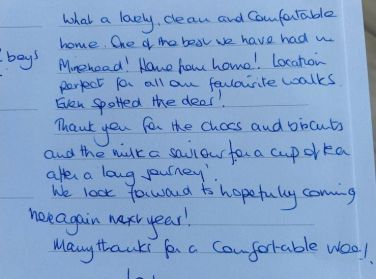 What a lovely, clean and Comfortable
home. One of the best we have had in
boys Minehead! Home from home! Location
perfect for all our favourite walks.
Even spotted the deer!
Thank you for the chocs and biscuits
and the milk a saviour for a cup of tea
after a long journey!
We look forward to hopefully coming
here again next year!
Many thanks for a Comfortable week!